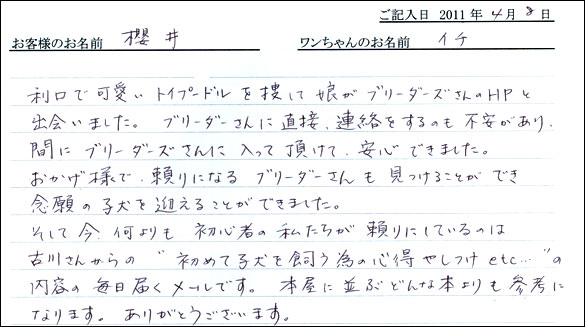 ご記入日 2011 年 4 月 8 日
お客様のお名前 櫻井 ワンちゃんのお名前 イチ
利口で可愛いトイプードルを捜して娘がブリーダーズさんのHPと
出会いました。 ブリーダーさんに直接、連絡をするのも不安があり、
間にブリーダーズさんに入って頂けて、安心できました。
おかげ様で、頼りになるブリーダーさんも見つけることができ
念願の子犬を迎えることができました。
そして今、何よりも初心者の私たちが頼りにしているのは
古川さんからの "初めて子犬を飼う為の心得やしつけetc…"の
内容の毎日届くメールです。 本屋に並ぶどんな本よりも参考に
なります。 ありがとうございます。